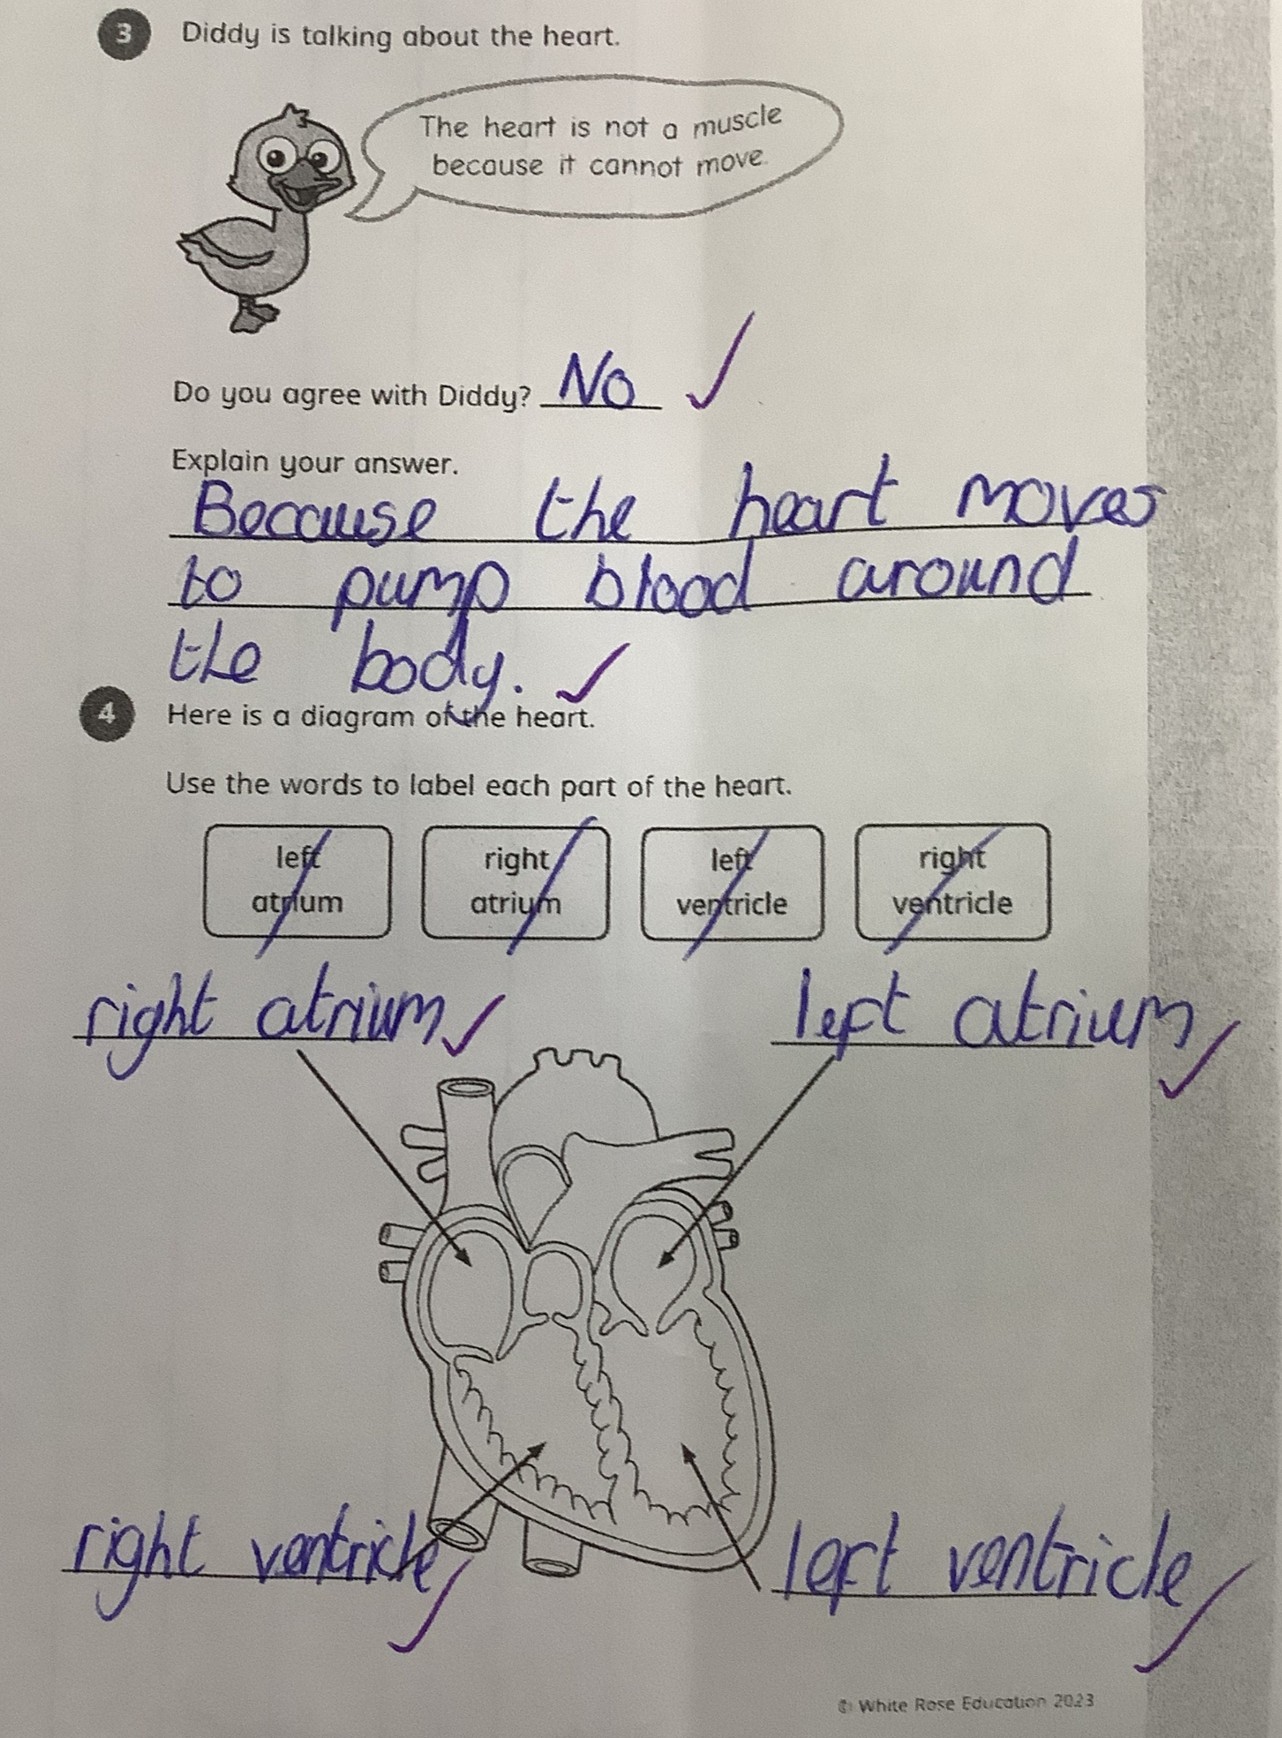 3 Diddy is talking about the heart.
The heart is not a muscle
because it cannot move.
Do you agree with Diddy? No
Explain your answer.
Because the heart moves
to pump blood around
the body.
4 Here is a diagram of the heart.
Use the words to label each part of the heart.
left atrium
right atrium
left ventricle
right ventricle
right atrium
left atrium
right ventricle
left ventricle
© White Rose Education 2023